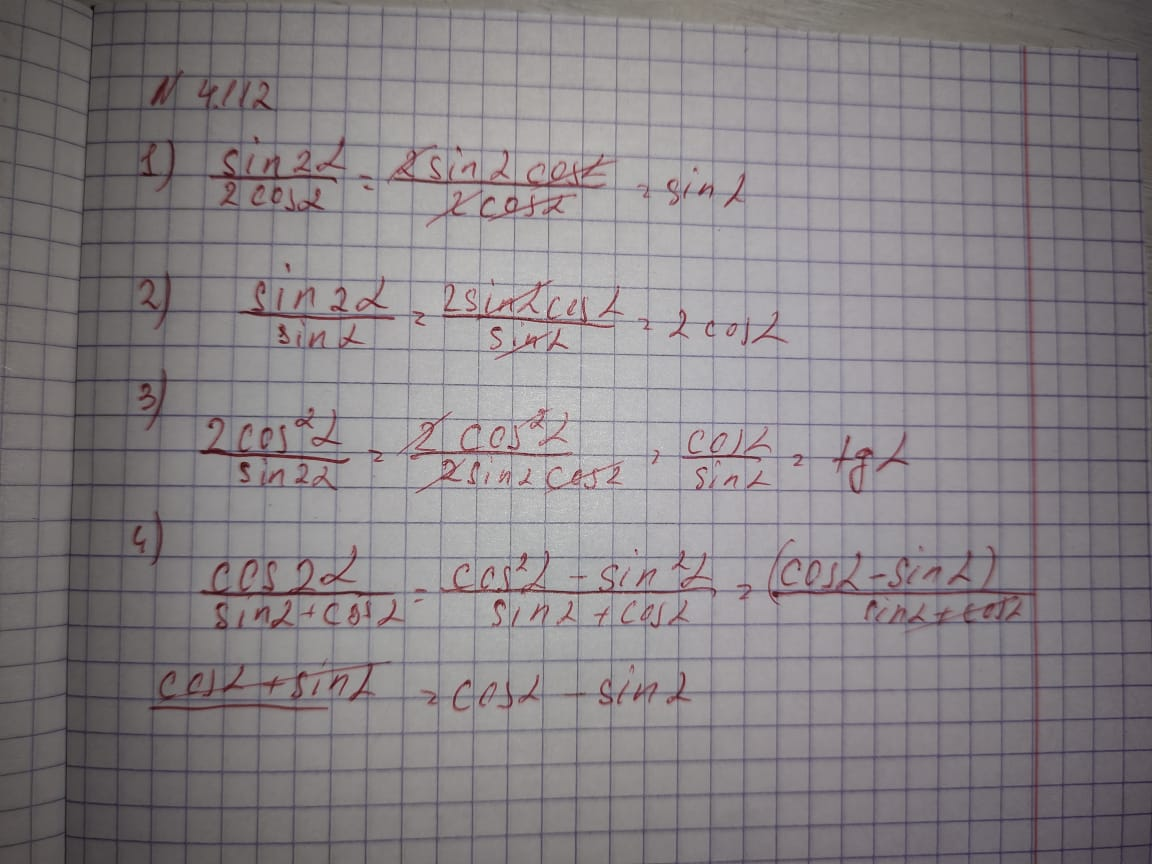 N 4.112
1) sin2α/2cosα = 2sinα cosα/2cosα = sinα
2) sin2α/sinα = 2sinαcosα/sinα = 2cosα
3)
2cos²α/sin2α = 2cos²α/2sinα cosα = cosα/sinα = tgα
4)
cos2α/sinα+cosα = cos²α-sin²α/sinα+cosα = (cosα-sinα)/sinα+cosα
cosα+sinα = cosα-sinα